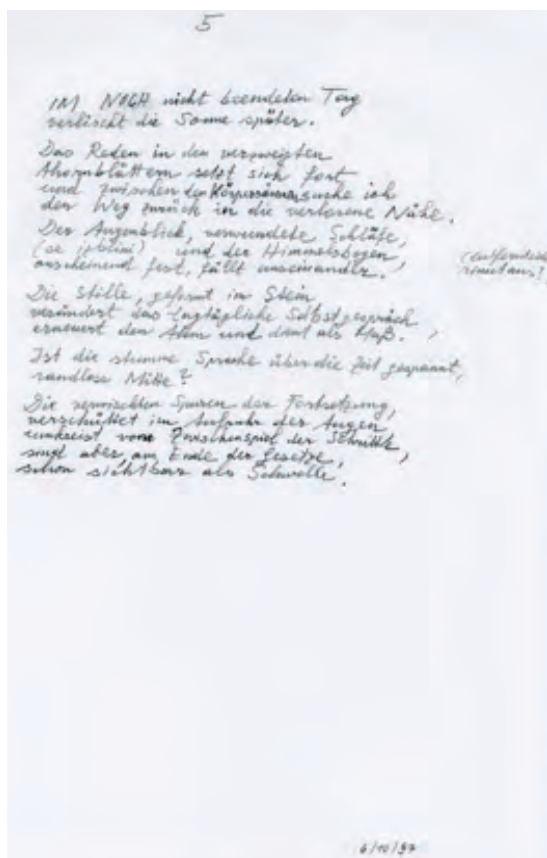 5
IM NOCH nicht beendeten Tag
verlischt die Sonne später.
Das Reden in den verzweigten
Ahornblättern setzt sich fort
und zwischen den suche ich
den Weg zurück in die verlorene Nähe.
Der Augenblick, verwundete Schläfe,
und der Himmelsbogen,
anscheinend fest, fällt auseinander.
Die Stille, geformt im Stein
verändert das Selbstgespräch
erneuert den Atem und dient als Maß.
Ist die stumme Sprache über die Zeit gespannt,
randlose Mitte?
Die verwischten Spuren der Fortsetzung,
verschüttet im Aufruhr der Augen
umkreist vom Zwischenspiel der Schritte,
sind aber am Ende der Gesetze,
schon sichtbar als Schwelle.
6/10/97